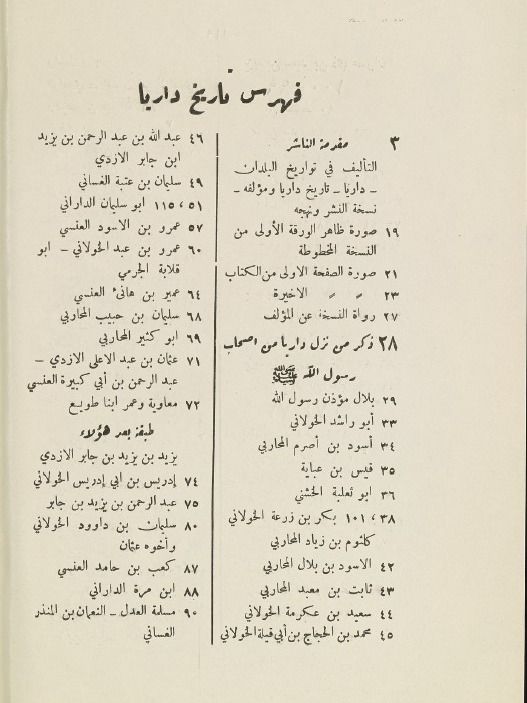 فهرس تاريخ داريا
٣ مقدمة الناشر
التأليف في تواريخ البلدان
– داريا – تاريخ داريا ومؤلفه –
نسخة النشر ونهجه
١٩ صورة ظاهر الورقة الأولى من
النسخة المخطوطة
٢١ صورة الصفحة الاولى من الكتاب
٢٣ » » الاخيرة
٢٧ رواة النسخة عن المؤلف
٢٨ ذكر من نزل داريا من اصحاب
رسول الله ﷺ
٢٩ بلال مؤذن رسول الله
٣٣ أبو راشد الخولاني
٣٤ أسود بن أصرم المحاربي
٣٥ قيس بن عباية
٣٦ ابو ثعلبة الخشني
٣٨ ، ١٠١ بكر بن زرعة الخولاني
كلثوم بن زياد المحاربي
٤٢ الاسود بن بلال المحاربي
٤٣ ثابت بن معبد المحاربي
٤٤ سعيد بن عكرمة الخولاني
٤٥ محمد بن الحجاج بن أبي قيلة الخولاني
٤٦ عبد الله بن عبد الرحمن بن يزيد
ابن جابر الازدي
٤٩ سليمان بن عتبة الغساني
٥١ ، ١١٥ ابو سليمان الداراني
٥٧ عمرو بن الاسود العنسي
٦٠ عمرو بن عبد الخولاني – ابو
قلابة الجرمي
٦٤ عمير بن هانئ العنسي
٦٨ سليمان بن حبيب المحاربي
٦٩ ابو كثير المحاربي
٧١ عثمان بن عبد الاعلى الازدي –
عبد الرحمن بن أبي كبيرة العنسي
٧٢ معاوية وعمر ابنا طويع
طبقة بعد هؤلاء
يزيد بن يزيد بن جابر الازدي
٧٤ إدريس بن ابي إدريس الخولاني
٧٥ عبد الرحمن بن يزيد بن جابر
٨٠ سليمان بن داوود الخولاني
وأخوه عثمان
٨٧ كعب بن حامد العنسي
٨٨ ابن مرة الداراني
٩٠ مسلمة العدل – النعمان بن المنذر
الغساني